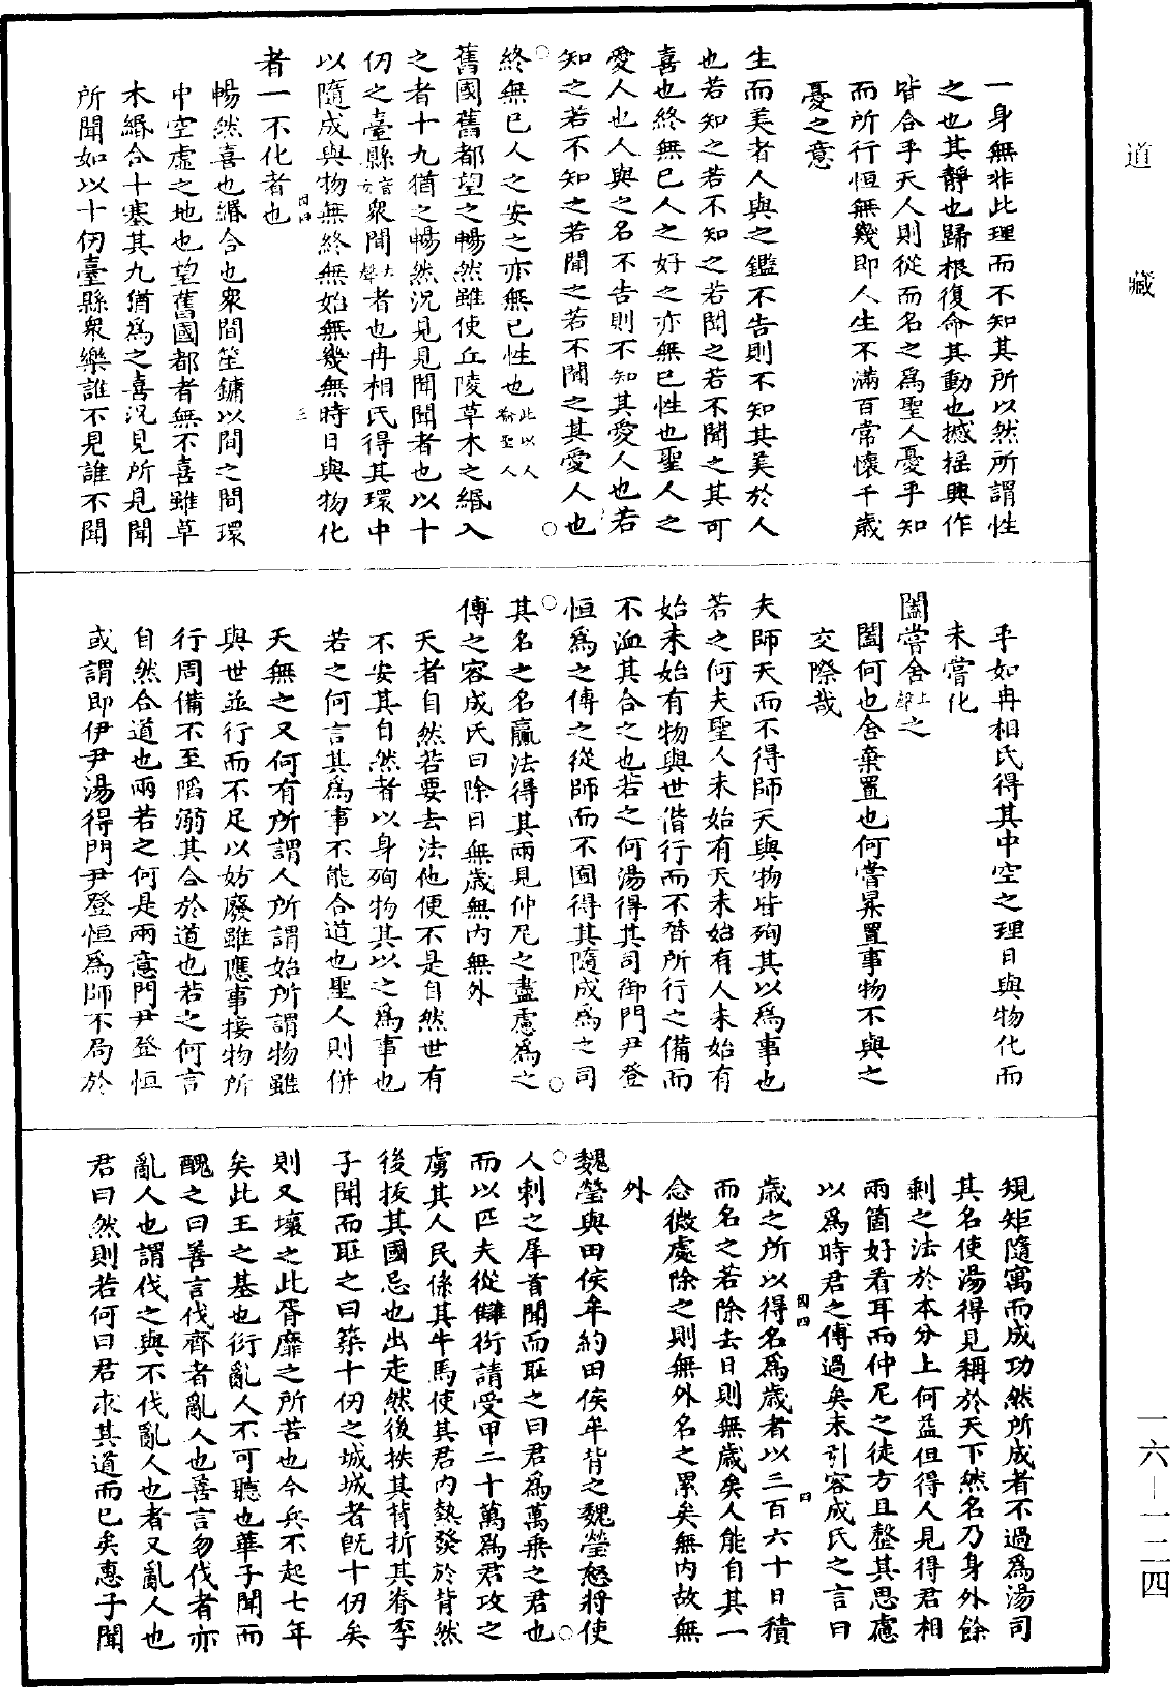 道藏
一身無非此理而不知其所以然所謂性
之也其靜也歸根復命其動也撼搖興作
皆合乎天人則從而名之爲聖人憂乎知
而所行恒無幾即人生不滿百常懷千歲
憂之意
生而美者人與之鑑不告則不知其美於人
也若知之若不知之若聞之若不聞之其可
喜也終無已人之好之亦無已性也聖人之
愛人也人與之名不告則不知其愛人也若
知之若不知之若聞之若不聞之其愛人也
終無已人之安之亦無已性也此以人喻聖人
舊國舊都望之暢然雖使丘陵草木之緡入
之者十九猶之暢然況見見聞聞者也以十
仞之臺縣音玄衆間去聲者也冉相氏得其環中
以隨成與物無終無始無幾無時日與物化
者一不化者也
暢然喜也緡合也衆間笙鏞以間之間環
中空虛之地也望舊國都者無不喜雖草
木緡合十塞其九猶爲之喜況見所見聞
所聞如以十仞臺縣衆樂誰不見誰不聞
乎如冉相氏得其中空之理日與物化而
未嘗化
闔嘗舍上聲之
闔何也舍棄置也何嘗棄置事物不與之
交際哉
夫師天而不得師天與物皆殉其以爲事也
若之何夫聖人未始有天未始有人未始有
始未始有物與世偕行而不替所行之備而
不洫其合之也若之何湯得其司御門尹登
恒爲之傅之從師而不囿得其隨成爲之司
其名之名贏法得其兩見仲尼之盡慮爲之
傅之容成氏曰除日無歲無內無外
天者自然若要去法他便不是自然世有
不安其自然者以身殉物其以之爲事也
若之何言其爲事不能合道也聖人則併
天無之又何有所謂人所謂始所謂物雖
與世並行而不足以妨廢雖應事接物所
行周備不至陷溺其合於道也若之何言
自然合道也兩若之何是兩意門尹登恒
或謂即伊尹湯得門尹登恒爲師不局於
規矩隨寓而成功然所成者不過爲湯司
其名使湯得見稱於天下然名乃身外餘
剩之法於本分上何益但得人見得君相
兩箇好看耳而仲尼之徒方且整其思慮
以爲時君之傅過矣末引容成氏之言曰
歲之所以得名爲歲者以三百六十日積
而名之若除去日則無歲矣人能自其一
念微處除之則無外名之累矣無內故無
外
魏瑩與田侯牟約田侯牟背之魏瑩怒將使
人刺之犀首聞而恥之曰君爲萬乘之君也
而以匹夫從讎衍請受甲二十萬爲君攻之
虜其人民係其牛馬使其君內熱發於背然
後拔其國忌也出走然後抶其背折其脊季
子聞而恥之曰築十仞之城城者既十仞矣
則又壞之此胥靡之所苦也今兵不起七年
矣此王之基也衍亂人不可聽也華子聞而
醜之曰善言伐齊者亂人也善言勿伐者亦
亂人也謂伐之與不伐亂人也者又亂人也
君曰然則若何曰君求其道而已矣惠子聞
一六—一二四